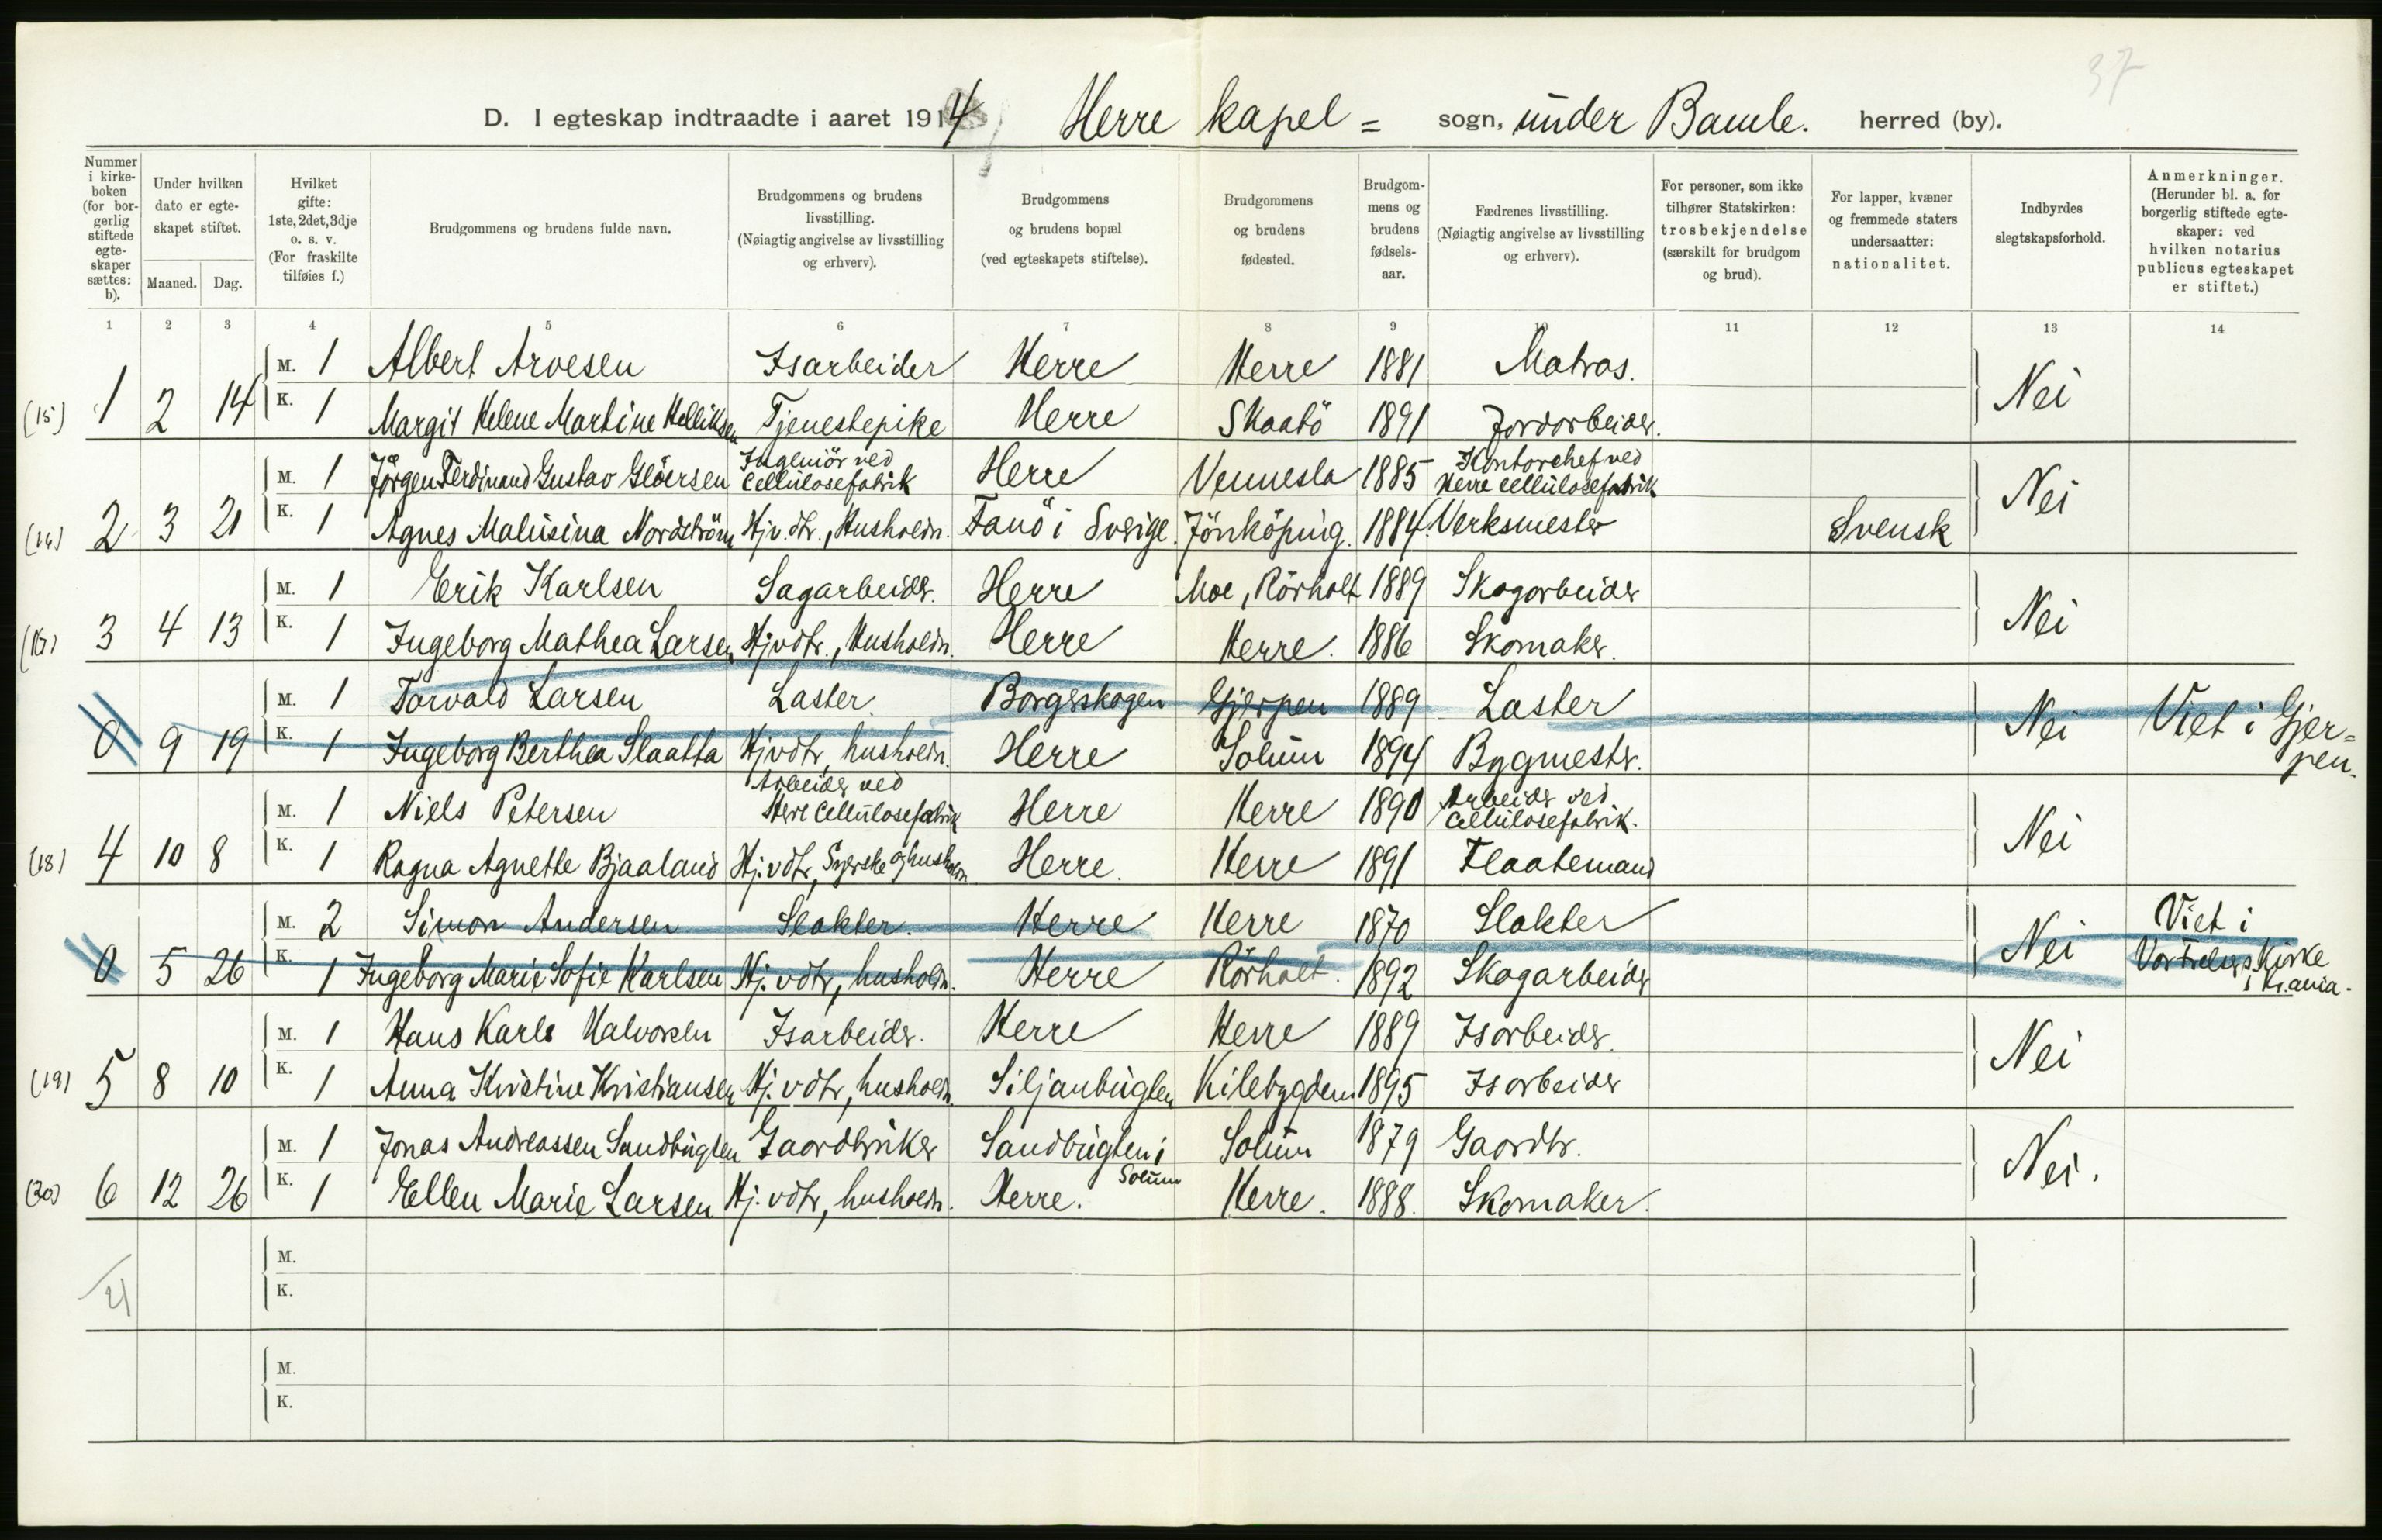 37
D. I egteskap indtraadte i aaret 1914 Herre kapel = sogn, under Bamle. herred (by).
Nummer i kirke-boken (for bor-gerlig stiftede egte-skaper sættes: b).
Under hvilken dato er egte-skapet stiftet.
Maaned. Dag.
Hvilket gifte: 1ste, 2det, 3dje o. s. v. (For fraskilte tilføies f.)
Brudgommens og brudens fulde navn.
Brudgommens og brudens livsstilling. (Nøiagtig angivelse av livsstilling og erhverv).
Brudgommens og brudens bopæl (ved egteskapets stiftelse).
Brudgommens og brudens fødested.
Brudgom-mens og brudens fødsels-aar.
Fædrenes livsstilling. (Nøiagtig angivelse av livsstilling og erhverv).
For personer, som ikke tilhører Statskirken: trosbekjendelse (særskilt for brudgom og brud).
For lapper, kvæner og fremmede staters undersaatter: nationalitet.
Indbyrdes slegtskapsforhold.
Anmerkninger. (Herunder bl. a. for borgerlig stiftede egte-skaper: ved hvilken notarius publicus egteskapet er stiftet.)
1 2 3 4 5 6 7 8 9 10 11 12 13 14
M. 1 Albert Arvesen Isarbeider Herre Herre 1881 Matros.
(15) 1 2 14 K. 1 Margit Helene Martine Helliksen Tjenestepike Herre Skaatö 1891 Jordarbeider. Nei
M. 1 Jörgen Ferdinand Gustav Glöersen Ingeniör ved Cellülosefabrik Herre Vennesla 1885 Kontorchef ved Herre cellülosefabrik
(16) 2 3 21 K. 1 Agnes Malüsina Nordström Hjv. dtr., Husholdn. Fanö i Sverige. Jönköping. 1884. Verksmester Svensk Nei
M. 1 Erik Karlsen Sagarbeider. Herre Moe, Rörholt 1889 Skogarbeider
(17) 3 4 13 K. 1 Ingeborg Mathea Larsen Hjvdtr., Husholdn. Herre Herre. 1886 Skomaker. Nei
M. 1 Torvald Larsen Laster. Borgeskogen Gjerpen 1889 Laster
0 9 19 K. 1 Ingeborg Berthea Slaatta Hjvdtr, husholdn. Herre Solum 1894 Bygmester. Nei Viet i Gjer=pen.
M. 1 Niels Petersen Arbeider ved Herre Cellülosefabrik Herre Herre 1890 Arbeider ved Cellülosefabrik.
(18) 4 10 8 K. 1 Ragna Agnethe Bjaaland Hj. vdtr, Syerske og husholdn. Herre. Herre 1891 Flaatemand Nei
M. 2 Simon Andersen Slakter. Herre Herre 1870 Slakter
0 5 26 K. 1 Ingeborg Marie Sofie Karlsen Hj. vdtr, husholdn. Herre Rörholt. 1892 Skogarbeider Nei Viet i Vor Frelsers Kirke i Kr.ania.
M. 1 Hans Karl Halvorsen Isarbeider. Herre Herre 1889 Isarbeider.
(19) 5 8 10 K. 1 Anna Kristine Kristiansen Hj. vdtr, husholdn. Siljanbügten Kilebygden 1895 Isarbeider Nei
M. 1 Jonas Andreassen Sandbügten Gaardbrüker Sandbügten i Solum Solum 1879 Gaardbr.
(20) 6 12 26 K. 1 Ellen Marie Larsen Hj. vdtr, husholdn. Herre. Herre. 1888. Skomaker. Nei.
M.
21 K.
M.
K.